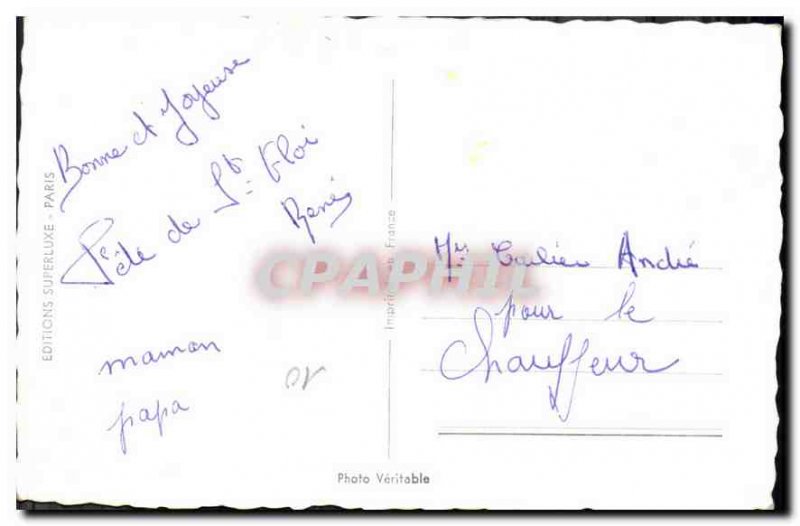 Bonne et Joyeuse
Fête de St. Eloi
René
maman
papa
EDITIONS SUPERLUXE - PARIS
CPAPHIL
France
Mr André
pour le
Chauffeur
Photo Véritable